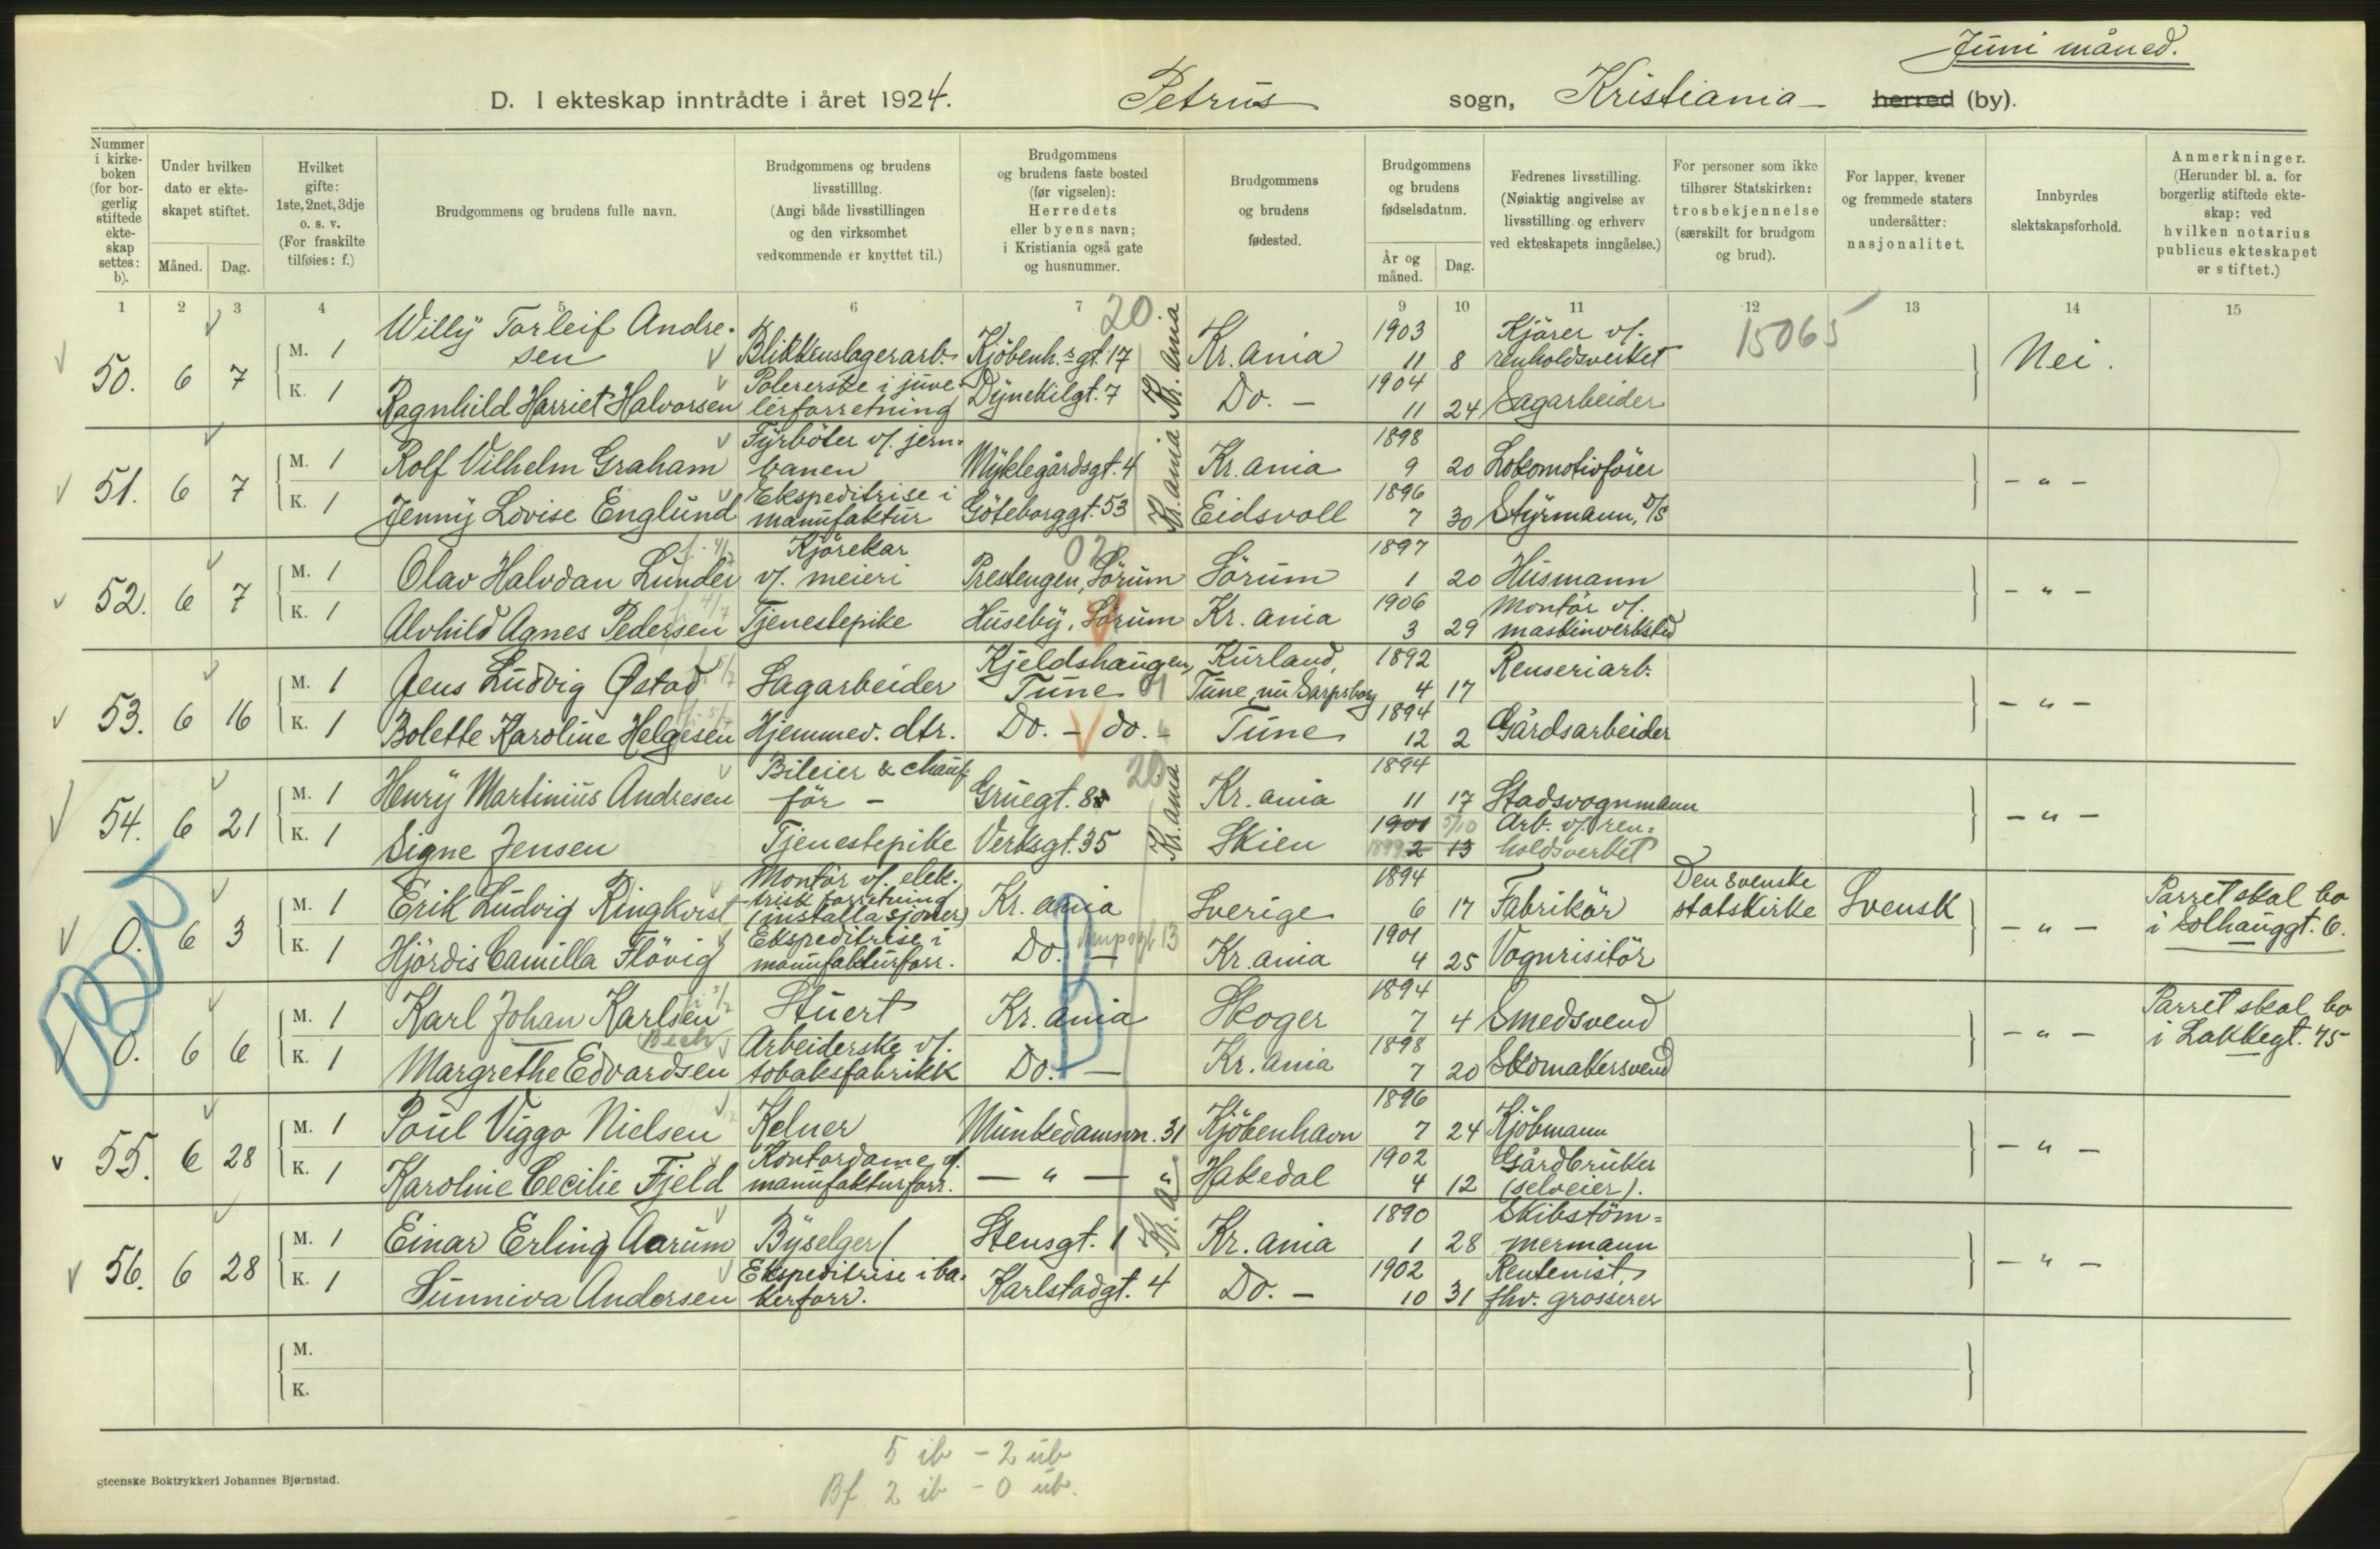 Juni måned.
D. I ekteskap inntrådte i året 1924. Petrus sogn, Kristiania herred (by).
Nummer i kirkeboken (for borgerlig stiftede ekteskap settes: b).
Under hvilken dato er ekteskapet stiftet.
Måned. Dag.
Hvilket gifte: 1ste, 2net, 3dje o. s. v. (For fraskilte tilføies: f.)
Brudgommens og brudens fulle navn.
Brudgommens og brudens livsstilling. (Angi både livsstillingen og den virksomhet vedkommende er knyttet til.)
Brudgommens og brudens faste bosted (før vigselen): Herredets eller byens navn; i Kristiania også gate og husnummer.
Brudgommens og brudens fødested.
Brudgommens og brudens fødselsdatum.
År og måned. Dag.
Fedrenes livsstilling. (Nøiaktig angivelse av livsstilling og erhverv ved ekteskapets inngåelse.)
For personer som ikke tilhører Statskirken: trosbekjennelse (særskilt for brudgom og brud).
For lapper, kvener og fremmede staters undersåtter: nasjonalitet.
Innbyrdes slektskapsforhold.
Anmerkninger. (Herunder bl. a. for borgerlig stiftede ekteskap: ved hvilken notarius publicus ekteskapet er stiftet.)
1 2 3 4 5 6 7 8 9 10 11 12 13 14 15
20. 15065
50. 6 7 M. 1 Willy Torleif Andresen Blikkenslagerarb. Kjöbenh.sgt. 17 Kr.ania Kr.ania 1903 11 8 Kjörer v/. renholdsverket Nei.
K. 1 Ragnhild Harriet Halvorsen Polererske i juvelérforretning Dynekilgt. 7 Do. — 1904 11 24 Sagarbeider
51. 6 7 M. 1 Rolf Vilhelm Graham Fyrböter v/. jernbanen Myklegårdsgt. 4 Kr.ania Kr.ania 1898 9 20 Lokomotivförer — " —
K. 1 Jenny Lovise Englund Ekspeditrise i manufaktur Göteborggt. 53 Eidsvoll 1896 7 30 Styrmann, D/S
52. 6 7 M. 1 Olav Halvdan Lunder Kjörekar v/. meieri Prestengen, Sörum 02 Sörum 1897 1 20 Husmann — " —
K. 1 Alvhild Agnes Pedersen Tjenestepike Huseby, Sörum Kr.ania 1906 3 29 Montör v/. maskinverksted
53. 6 16 M. 1 Jens Ludvig Østad Sagarbeider Kjeldshaugen, Tune 01 Kurland, Tune, nu Sarpsborg 1892 4 17 Renseriarb. — " —
K. 1 Bolette Karoline Helgesen Hjemmev. dtr. Do. — do. — Tune 1894 12 2 Gårdsarbeider
54. 6 21 M. 1 Henry Martinius Andresen Bileier & chaufför — Gruegt. 8 20. Kr.ania Kr.ania 1894 11 17 Stadsvognmann — " —
K. 1 Signe Jensen Tjenestepike Verksgt. 35 Skien 1901 2 13 Arb. v/. renholdsverket
0. 6 3 M. 1 Erik Ludvig Ringkvist Montör v/. elektrisk forretning (installasjoner) Kr.ania Sverige 1894 6 17 Fabrikör Den svenske statskirke Svensk — " — Parret skal bo i Solhauggt. 6.
K. 1 Hjördis Camilla Flövig Ekspeditrise i manufakturforr. Do. — Kr.ania 1901 4 25 Vognvisitör
0. 6 6 M. 1 Karl Johan Karlsen Stuert Kr.ania Skoger 1894 7 4 Smedsvend — " — Parret skal bo i Lakkegt. 75
K. 1 Margrethe Edvardsen Arbeiderske v/. tobaksfabrikk Do. — Kr.ania 1898 7 20 Skomakersvend
55. 6 28 M. 1 Poul Viggo Nielsen Kelner Munkedamsvn. 31 Kjöbenhavn 1896 7 24 Kjöbmann — " —
K. 1 Karoline Cecilie Fjeld Kontordame v/. manufakturforr. — " — " Hakedal 1902 4 12 Gårdbruker (selveier).
56. 6 28 M. 1 Einar Erling Aarum Byselger Stensgt. 1 Kr.a. Kr.ania 1890 1 28 Skibstömmermann — " —
K. 1 Sunniva Andersen Ekspeditrise i bakerforr. Karlstadgt. 4 Do. — 1902 10 31 Rentenist, fhv. grosserer
M.
K.
5 ib - 2 ub
Bf. 2 ib - 0 ub.
gteenske Boktrykkeri Johannes Bjørnstad.